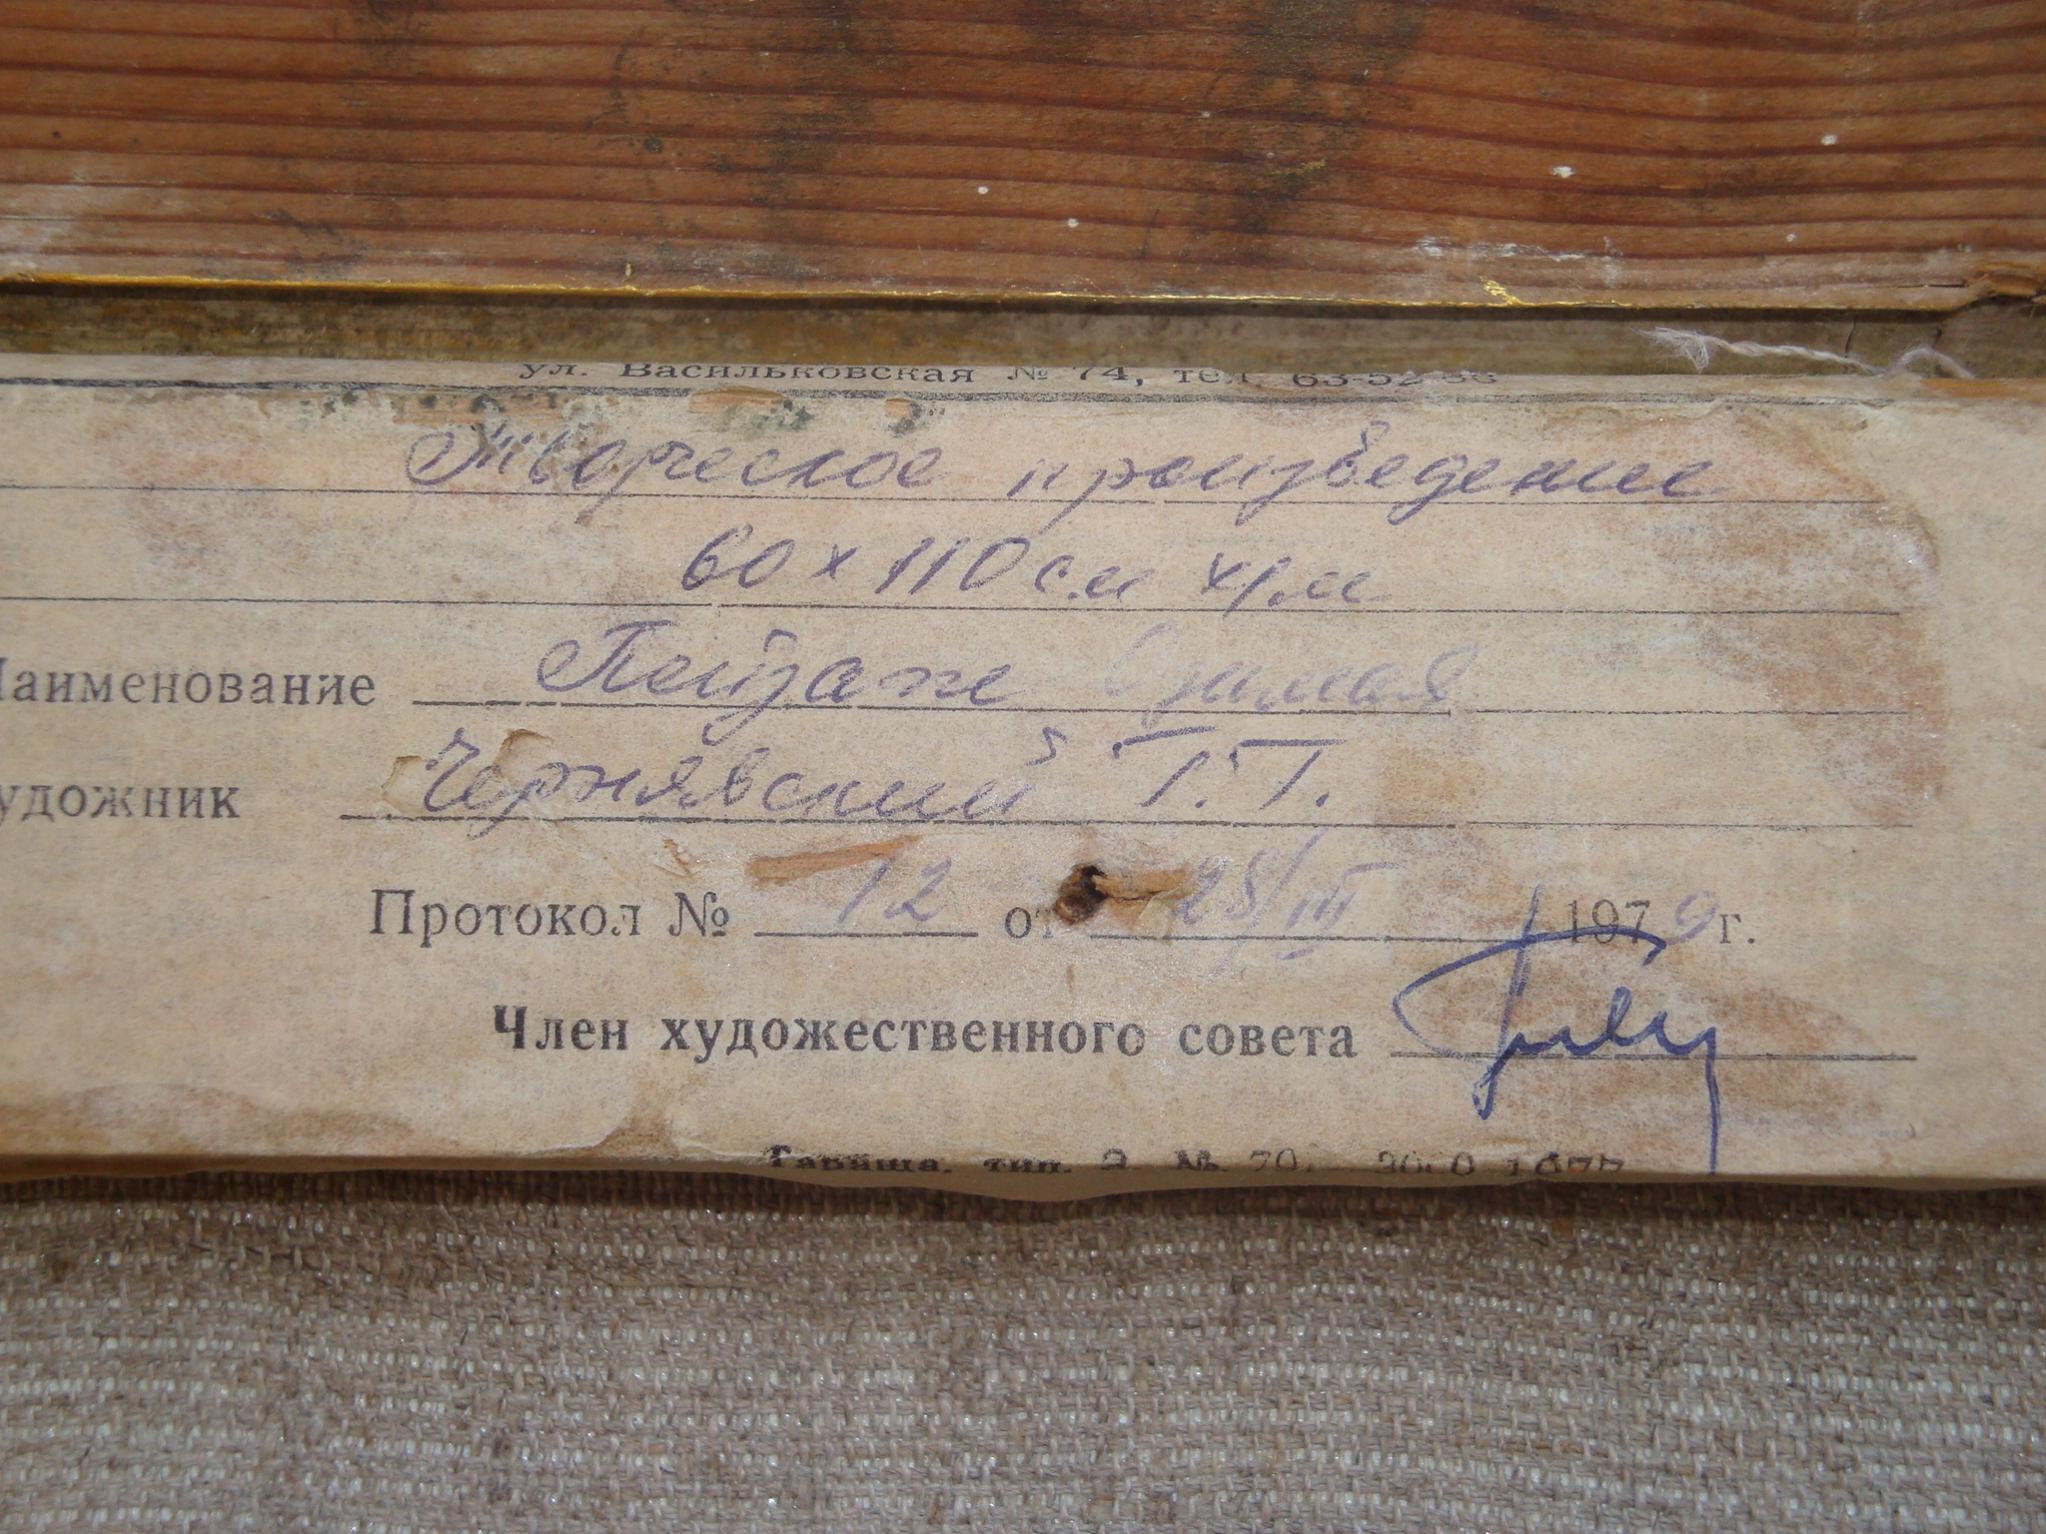 ул. Васильковская № 74, тел. 63-52-
Творческое произведение
60 х 110 см х/м
Наименование Пейзаж
Художник Чернявский Г.Г.
Протокол № 12 от 28/III 1979 г.
Член художественного совета
тип. З. № 70. 1977